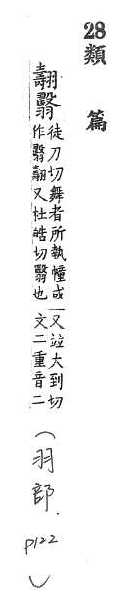 28類　篇
翿翳徒刀切舞者所執幢或
作翳翿又杜皓切翳也
又竝大到切
文二重音二
（羽部. p122）